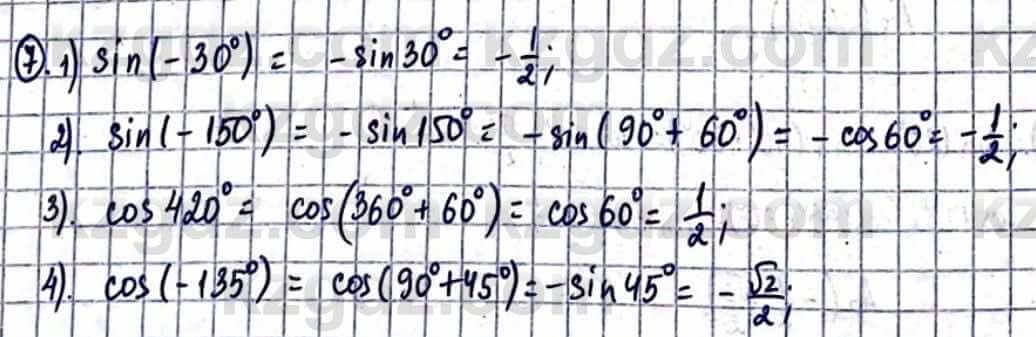 ⑦. 1) sin(-30°) = -sin30° = -1/2;
2). sin(-150°) = -sin150° = -sin(90°+60°) = -cos60° = -1/2;
3). cos420° = cos(360°+60°) = cos60° = 1/2;
4). cos(-135°) = cos(90°+45°) = -sin45° = -√2/2;